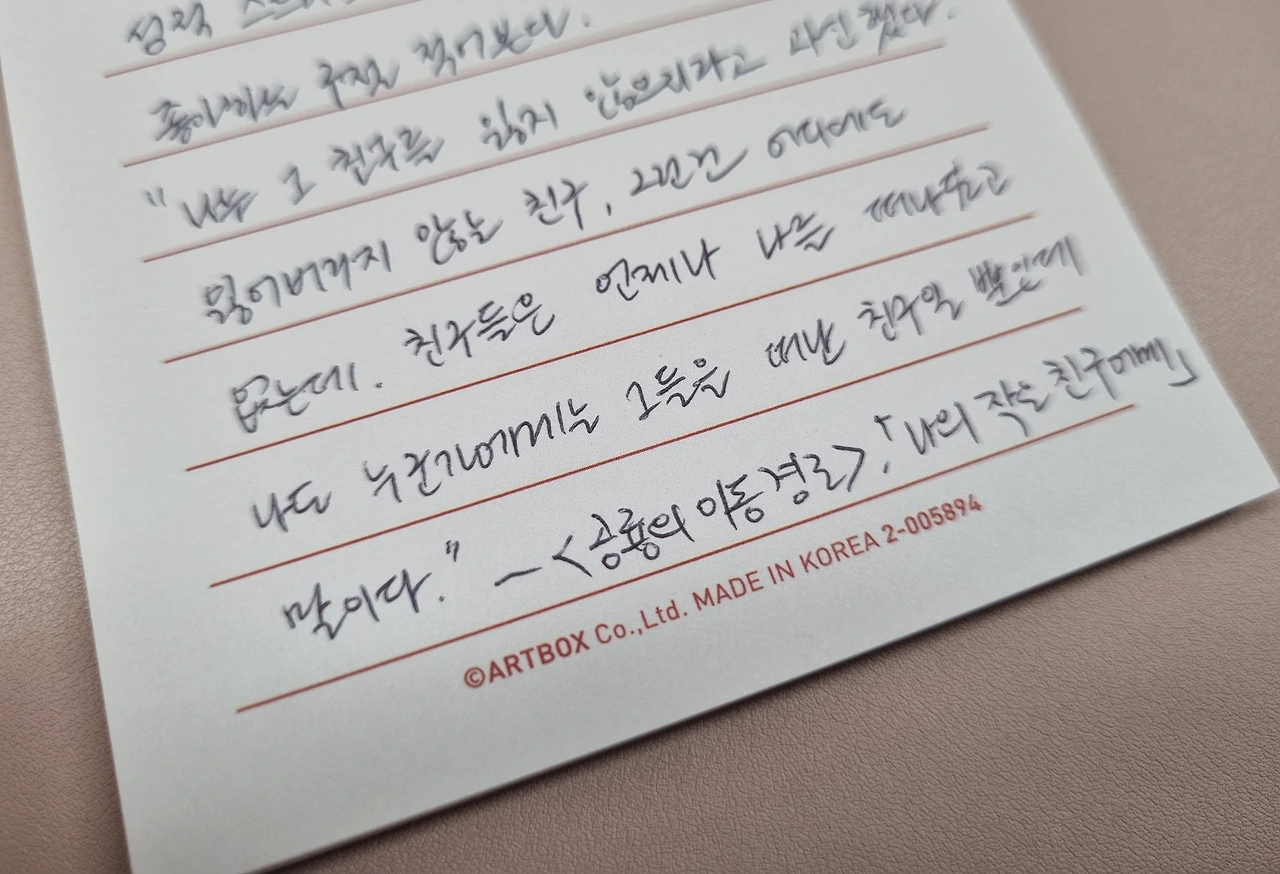 성적
좋아하는 구절 적어본다.
"나는 그 친구를 잃지 않으리라고 과신했다.
잃어버리지 않는 친구, 그런건 어디에도
없는데. 친구들은 언제나 나를 떠나왔고
나도 누군가에게는 그들을 떠난 친구일 뿐인데
말이다." - <공룡의 이동 경로>,「나의 작은 친구에게」
©ARTBOX Co.,Ltd. MADE IN KOREA 2-005894